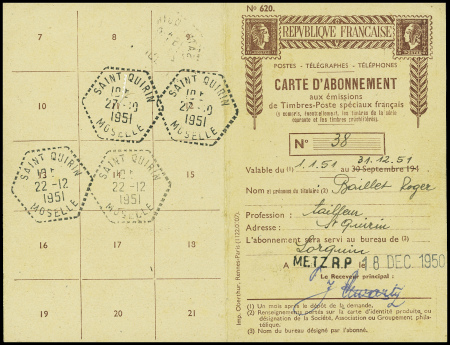 7
8
9
10
15
16
17
18
19
20
21
SAINT QUIRIN
1951
MOSELLE
SAINT QUIRIN
1951
MOSELLE
SAINT QUIRIN
22-12
1951
MOSELLE
SAINT QUIRIN
22-12
1951
MOSELLE
Imp. Oberthur, Rennes-Paris
No 620.
REPVBLIQVE FRANÇAISE
POSTES - TÉLÉGRAPHES - TÉLÉPHONES
CARTE D'ABONNEMENT
aux émissions
de Timbres-Poste spéciaux français
No 38
Valable du (1) 1.1.51 au 31.12.51 30 Septembre 194
Nom et prénoms du titulaire: (2) Baillet Roger
Profession : tailleur
Adresse : St Quirin
L'abonnement sera servi au bureau de (3)
Lorquin
A METZ R.P. 18 DEC 1950
Le Receveur principal :
(1) Un mois après le dépôt de la demande.
(2) Renseignements portés sur la carte d'identité produite ou
désignation de la Société, Association ou Groupement phila-
télique.
(3) Nom du bureau désigné par l'abonné.